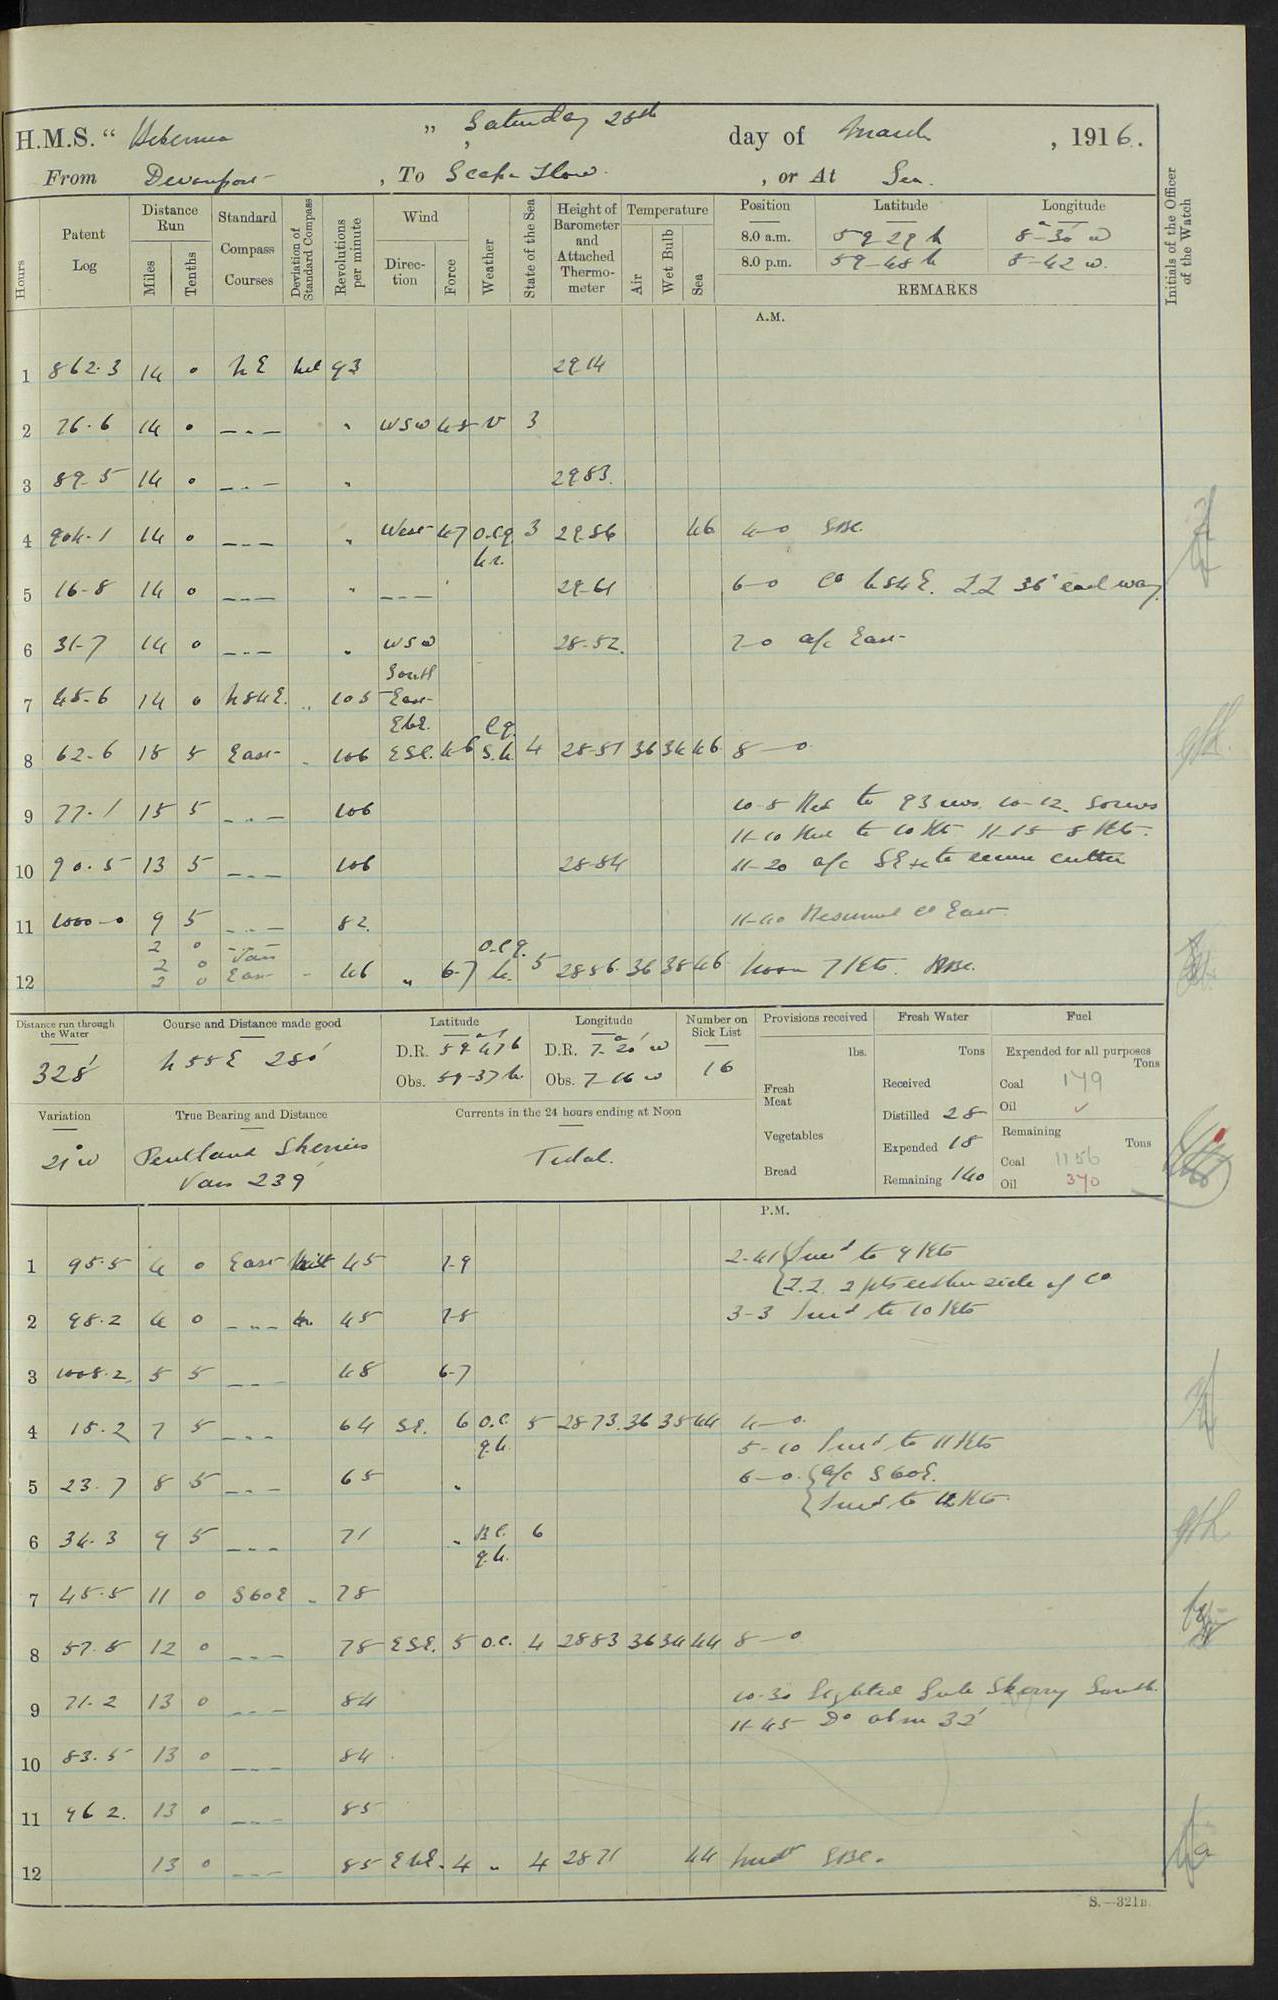 H.M.S. " Hibernia " Saturday 25th day of March , 1916.
From Devonport , To Scapa Flow , or At Sea.
Hours
Patent Log
Distance Run
Miles
Tenths
Standard Compass Courses
Deviation of Standard Compass
Revolutions per minute
Wind
Direction
Force
Weather
State of the Sea
Height of Barometer and Attached Thermometer
Temperature
Air
Wet Bulb
Sea
Position Latitude Longitude
8.0 a.m. 59-29 N 8-30 W
8.0 p.m. 59-48 N 8-42 W.
REMARKS
Initials of the Officer of the Watch
A.M.
1 862.3 14 0 NE 93 29.14
2 76.6 14 0 " WSW 4-5 3
3 89.5 14 0 "
4 904.1 14 0 " West 3 46 4-0
5 16.8 14 0 "
6-0 Co N84E. ZZ 36° each way
6 31.7 14 0 " WSW 28.52.
7-0 a/c East
South
7 45.6 14 0 N84E. " 105 East
EbE.
8 62.6 15 5 East 106 ESE. 4-6 4 28.51 36 34 46 8-0
9 77.1 15 5 106
10-5 Red to 93 revs. 10-12.
11-10 Red to 10 Kts 11-15 8 Kts.
10 90.5 13 5 106 28.84
11-20 a/c SE to secure cutter
11 1000-0 9 5 82.
11-40 Resumed Co East
2 0
2 0 Var
12 2 0 East 46 " 6-7 5 28.86 36 38 46 Noon 7 Kts.
Distance run through the Water
328'
Course and Distance made good
N 55 E 280'
Latitude
D.R. 59-47 N
Obs. 59-37 N.
Longitude
D.R. 7-20 W
Obs. 7-16 W
Number on Sick List
16
Provisions received
lbs.
Fresh Meat
Vegetables
Bread
Fresh Water
Tons
Received
Distilled 28
Expended 18
Remaining 140
Fuel
Expended for all purposes
Tons
Coal 179
Oil ✓
Remaining
Tons
Coal 1156
Oil 370
Variation
21° W
True Bearing and Distance
Pentland Skerries
Var 239'
Currents in the 24 hours ending at Noon
Tidal.
P.M.
1 95.5 4 0 East 45 7-9
2-41 Incd to 9 Kts
Z.Z. 2 pts either side of Co
2 98.2 4 0 45 7-8
3-3 Incd to 10 Kts
3 1008.2 5 5 48 6-7
4 15.2 7 5 64 SE. 6 o.c. 5 28.73. 36 35 44 4-0
5-10 Incd to 11 Kts
5 23.7 8 5 65 "
6-0. a/c S60E.
Incd to 12 Kts
6 34.3 9 5 71 " B.C. 6
7 45.5 11 0 S60E " 78
8 57.5 12 0 78 ESE. 5 o.c. 4 28.83 36 34 44 8-0
9 71.2 13 0 84
10-30 Sighted Sule Skerry South.
11-45 Do abm 32'
10 83.5 13 0 84
11 96 2. 13 0 85
12 13 0 85 EbE. 4 " 4 28.71 44
S.—321B.